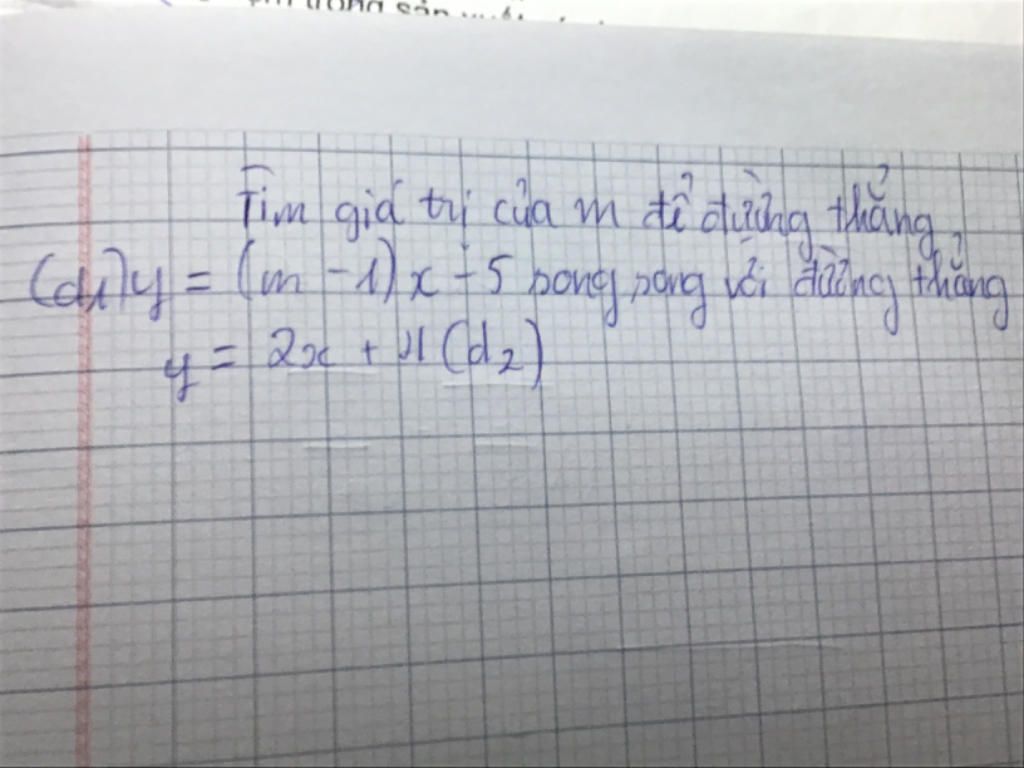 trong sản xuất
Tìm giá trị của m để đường thẳng
(d1) y = (m - 1)x - 5 song song với đường thẳng
y = 2x + 11 (d2)